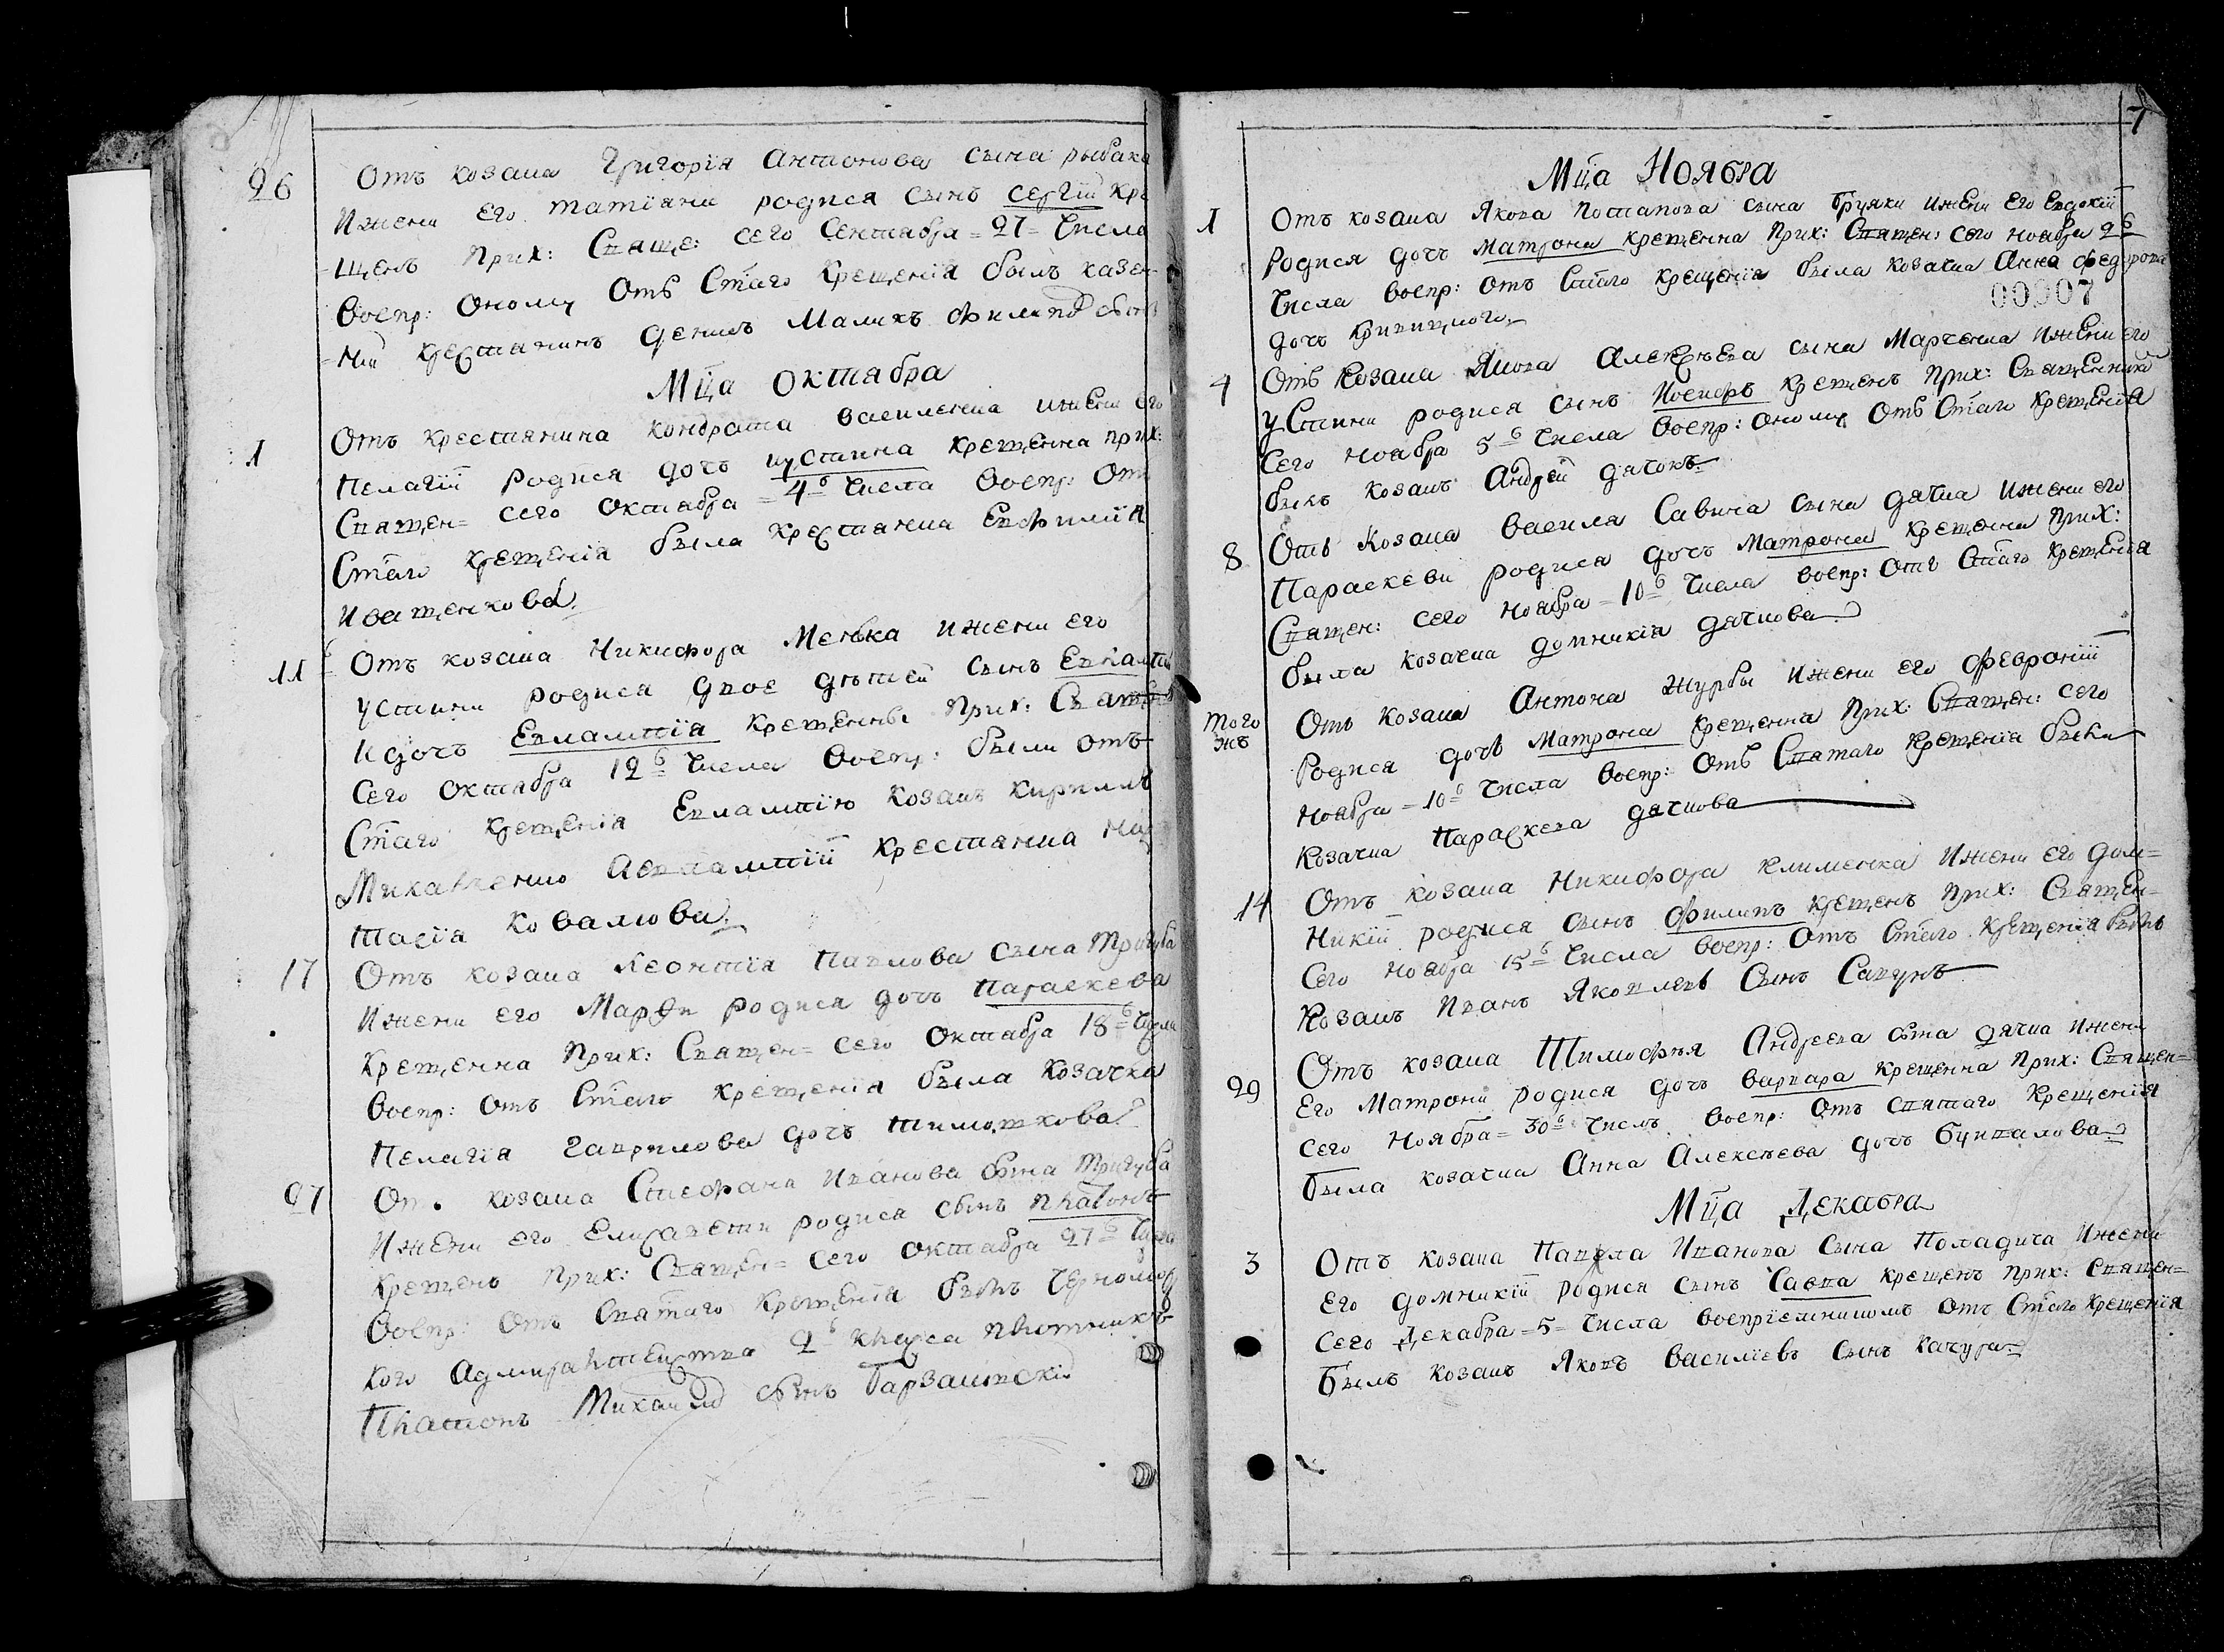 26
Отъ козака Григорія Антонова сына рыбака
Ижени его татіани родися сынъ сергій кре
-щенъ прих: Свяще: сего Сентабра = 27 = Числа
Воспр: оному Отъ Стаго Крещенія былъ казен-
-ній крестанинъ Денисъ Маликъ
Мца октабра
1
Отъ крестянина кондрата василенка ижени его
Пелагіи родися дочъ иустина крещенна прих:
Священ= сего октабра = 4 = Числа Воспр: Отъ
Стаго крещенія была крестанка Евфимія
Иващенкова.
11
Отъ козака Никифора Менька ижени его
устини родися двое дѣтей сынъ Евлампій
И дочъ Евлампія крещенны прих: Священ
Сего октабра 12 Числа Воспр: были отъ
Стаго крещенія Евлампію козакъ кирилъ
Михайленко аевлампіи крестянка
тасія ковалюва.
17
Отъ козака Леонтія Павлова сына Тригуба
Ижени его Марѳи родися дочъ Параскева
крещенна прих: Священ= сего октабра 18 Числа
Воспр: отъ Стаго крещенія была козачка
Пелагія гаврилова дочъ тимошкова
27
От. козака Стефана Иванова сына Тригуба
Ижени его Елисавети родися сынъ Платонъ
крещенъ прих: Священ= сего октабра 27 Числа
Воспр: Отъ Святаго крещенія былъ Черномор
кого адмиралтейства 2 класа плотникъ
Платонъ Михайло сынъ Барзаинскій
7
Мца Ноября
1
Отъ козака Якова Потапова сына Бруяки ижени его Евдокіи
Родися дочъ Матрона крещенна прих: Священ: сего ноабра 2
Числа воспр: отъ Стаго крещенія была козачка Анна федорова
00007
дочъ кривицкого
4
Отъ козака Якова Алексѣева сына Марченка ижени его
устини родися сынъ Иосифъ крещенъ прих: Священника
Сего ноабра 5 Числа воспр: оному отъ Стаго крещенія
былъ козакъ Андрей дячокъ
8
Отъ козака василя Савича сына дячка ижени его
Параскеви родися дочъ Матрона крещенна прих:
Священ: сего ноабра = 10 Числа воспр: отъ Стаго крещенія
была козачка домникія дячкова
того
жъ
Отъ козака Антона журбы ижени его февроніи
Родися дочъ Матрона крещенна прих: Священ: сего
ноабра = 10 Числа воспр: отъ Святаго крещенія была
козачка Параскева дячкова
14
Отъ козака Никифора клименка ижени его дом=
никіи родися сынъ филипъ крещенъ прих: Священ=
Сего ноабра 15 Числа воспр: отъ Стаго крещенія былъ
козакъ Иванъ Яковлевъ Сынъ Сапунъ
29
Отъ козака Тимофѣя Андреева сына дячка ижени
Его Матрони родися дочъ варвара крещенна прих: Священ=
сего Ноября = 30 Числъ воспр: отъ святаго крещенія
была козачка Анна Алексѣева дочъ
Мца Декабра
3
Отъ козака Павла Иванова Сына Поладича ижени
Его домникіи родися сынъ Савва крещенъ прих: Священ=
сего Декабра = 5 = Числа воспріемникомъ отъ Стаго крещенія
былъ козакъ Яковъ Василіевъ сынъ качура